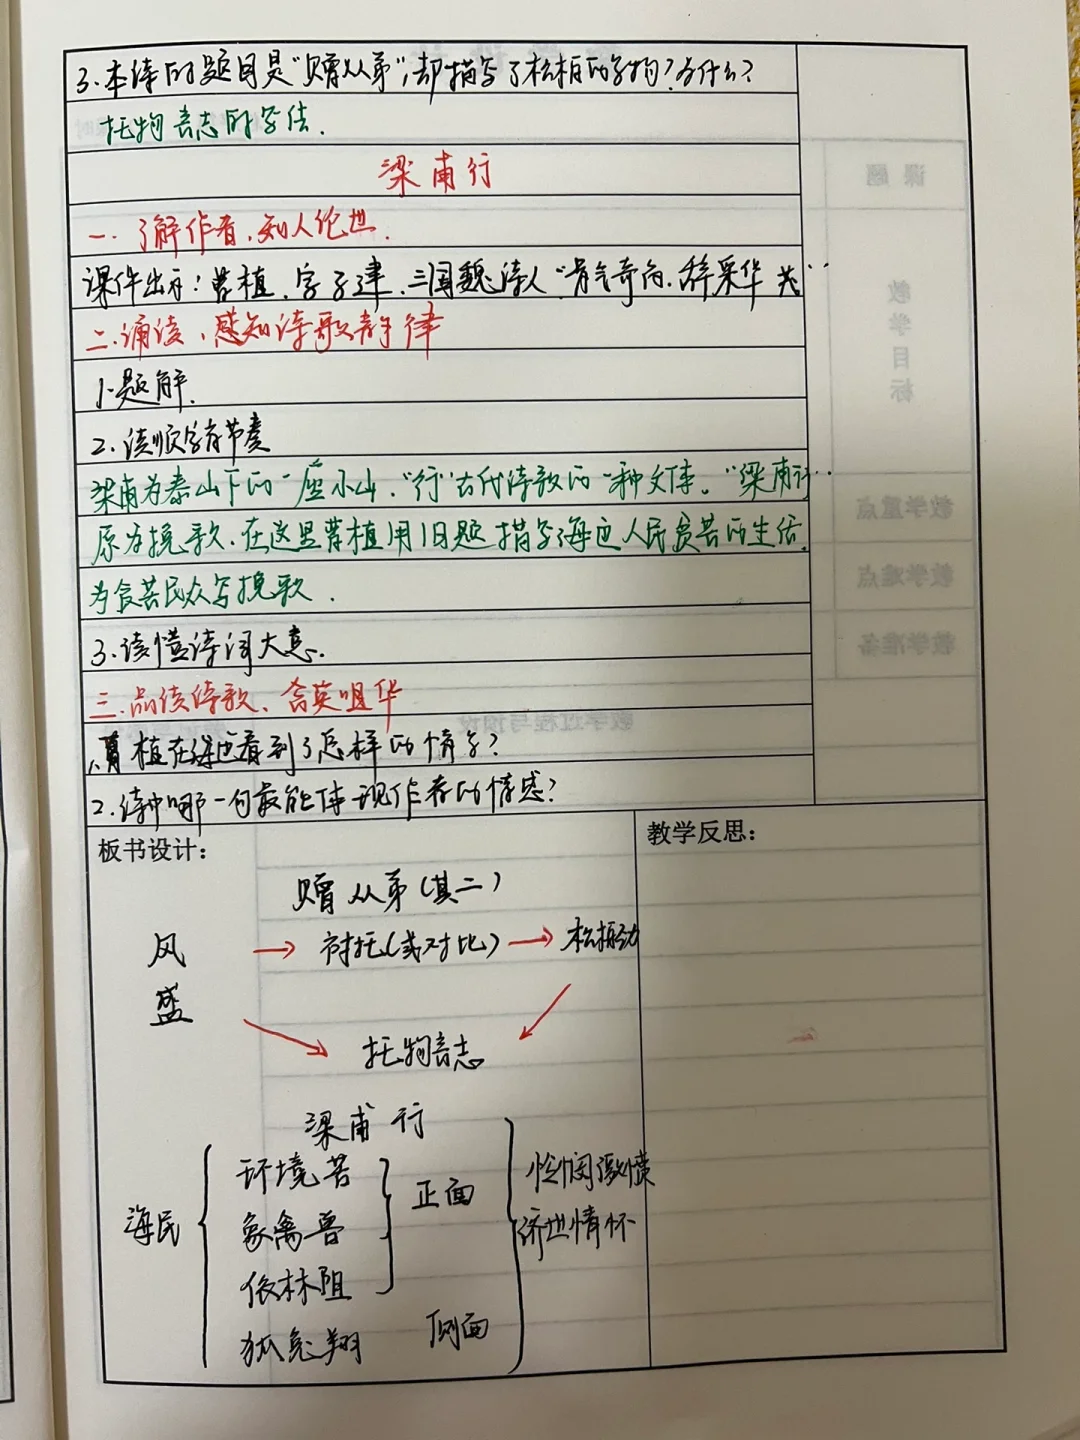 3.本诗的题目是"赠从弟",却描写了松柏的事物?为什么?
托物言志的写法.
梁甫行
一.了解作者,知人论世.
课件出示:曹植,字子建,三国魏诗人"骨气奇高,辞采华茂..
二.诵读,感知诗歌韵律
1.题解.
2.读顺字有节奏
梁甫为泰山下的一座小山,"行"古代诗歌的一种文体。"梁甫行..
原为挽歌,在这里曹植用旧题描写海边人民贫苦的生活,
为贫苦民众写挽歌.
3.读懂诗词大意.
三.品读诗歌、含英咀华
1.曹植在海边看到了怎样的情景?
2.诗中哪一句最能体现作者的情感?
板书设计:
教学反思:
赠从弟(其二)
风 → 衬托(或对比) → 松柏劲
盛
托物言志
梁甫行
海民
环境苦
象禽兽
依林阻
正面
狐兔翔
侧面
怜悯激愤
济世情怀
课题
教学目标
教学重点
教学难点
教学准备
教学过程与预设